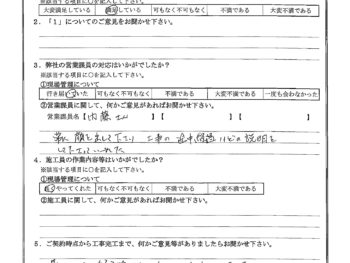 ※該当する項目に○を記入して下さい。
大変満足している 満足している 可もなく不可もなく 不満である 大変不満である
2．「1」についてのご意見をお聞かせ下さい。
3．弊社の営業課員の対応はいかがでしたか？
※該当する項目に○を記入して下さい。
①現場管理について
行き届いていた 可もなく不可もなく 不満である 大変不満である 一度も会わなかった
②営業課員に関して、何かご意見があればお聞かせ下さい。
営業課員名【内藤さん】【 】【 】
顔を出して下さり 工事の途中経過などの説明を
して下さいました
4．施工員の作業内容等はいかがでしたか？
※該当する項目に○を記入して下さい。
①現場管理について
良くやってくれた 可もなく不可もなく 不満である 大変不満である
②施工員に関して、何かご意見があればお聞かせ下さい。
5．ご契約時点から工事完工まで、何かご意見等がありましたらお聞かせ下さい。